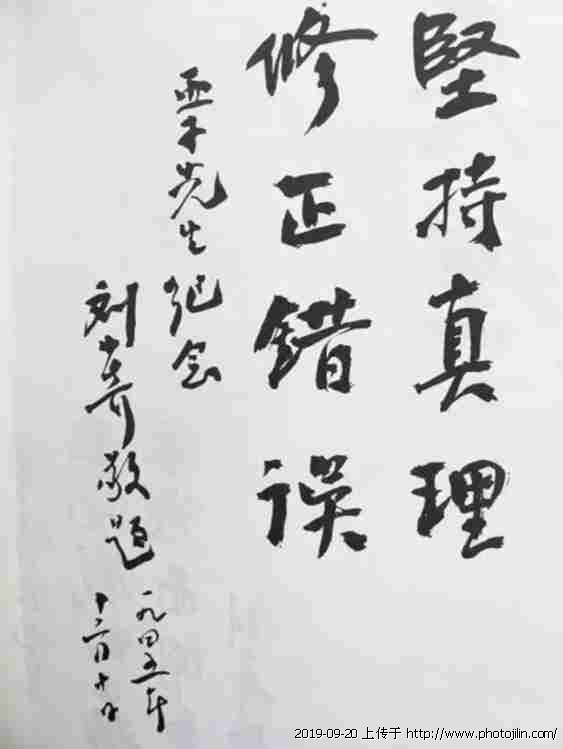 堅持真理
修正錯誤
亚子先生纪念
刘少奇敬题
一九四五年
十二月十日
2019-09-20 上传于 http://www.photojilin.com/